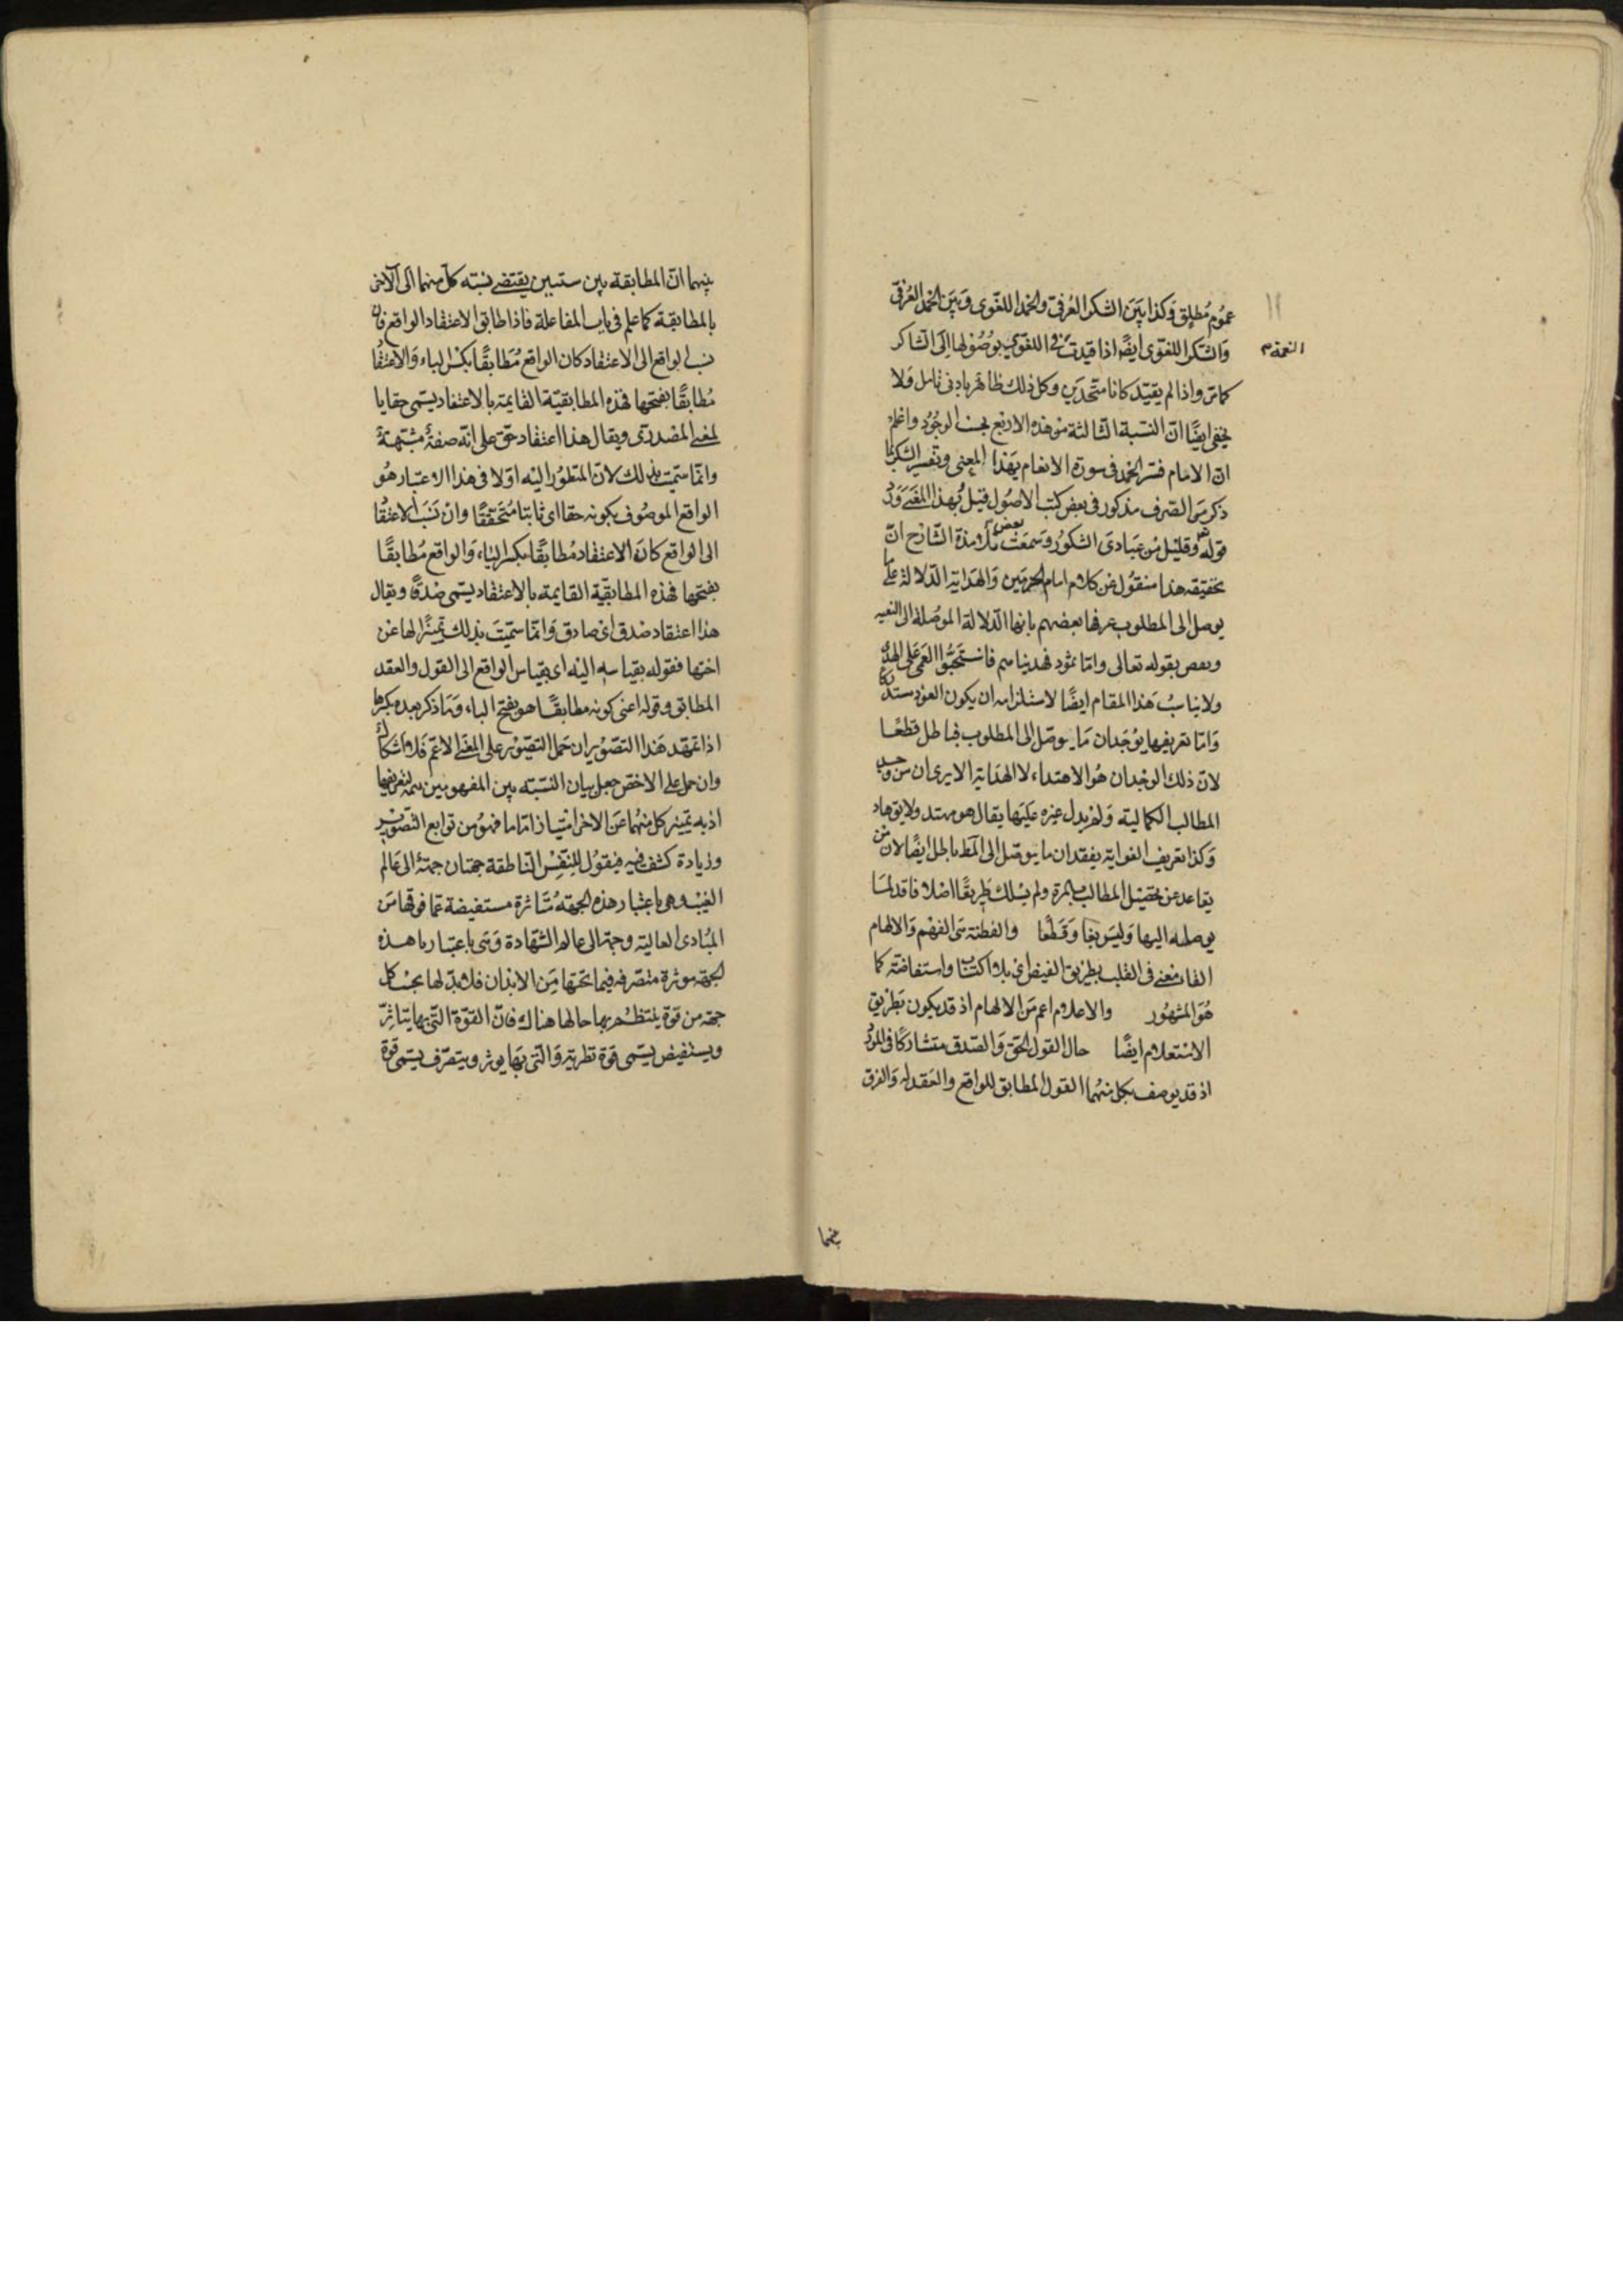 عموم مطلق وكذا بين الشكر العرفى والحمد اللغوى وبين الحمد العرفى
والشكر اللغوى ايضا اذا قيدت النعمة فى اللغوى بوصولها الى الشاكر
كما مر واذا لم يقيد كانا متحدين وكل ذلك ظاهر بادنى تامل ولا
يخفى ايضا ان النسبة الثالثة من هذه الاربع بحسب الوجود واعلم
ان الامام فسر الحمد فى سورة الانعام بهذا المعنى وتفسير الشكر بما
ذكر من الصرف مذكور فى بعض كتب الاصول قيل وبهذا المعنى ورد
قوله تعالى وقليل من عبادى الشكور وسمعت بعض تلامذة الشارح ان
تحقيقه هذا منقول عن كلام امام الحرمين والهداية الدلالة على ما
يوصل الى المطلوب عرفها بعضهم بانها الدلالة الموصلة الى البغية
ونقض بقوله تعالى واما ثمود فهديناهم فاستحبوا العمى على الهدى
ولا يناسب هذا المقام ايضا لاستلزامه ان يكون العوذ مستدركا
واما تعريفها بوجدان ما يوصل الى المطلوب فباطل قطعا
لان ذلك الوجدان هو الاهتداء لا الهداية الا يرى ان من وجد
المطالب الكمالية ولم يدل غيره عليها يقال هو مهتد ولا يق هاد
وكذا تعريف الغواية بفقدان ما يوصل الى المط باطل ايضا لان من
تقاعد عن تحصيل المطالب بالمرة ولم يسلك طريقا اصلا فاقد لما
يوصله اليها وليس بغاو قطعا والفطنة هى الفهم والالهام
القاء معنى فى القلب بطريق الفيض اى بلا اكتساب واستفاضة كما
هو المشهور والاعلام اعم من الالهام اذ قد يكون بطريق
الاستعلام ايضا حال القول الحق والصدق متشاركا فى المورد
اذ قد يوصف بكل منهما القول المطابق للواقع والعقد له والفرق
النعمة
بينهما
بينهما ان المطابقة بين شيئين يقتضى نسبة كل منهما الى الاخر
بالمطابقة كما علم فى باب المفاعلة فاذا طابق الاعتقاد الواقع فان
نسب الواقع الى الاعتقاد كان الواقع مطابقا بكسر الباء والاعتقاد
مطابقا بفتحها فهذه المطابقية القايمة بالاعتقاد يسمى حقا با
لمعنى المصدرى ويقال هذا اعتقاد حق على انه صفة مشبهة
وانما سميت بذلك لان المنظور اليه اولا فى هذا الاعتبار هو
الواقع الموصوف بكونه حقا اى ثابتا متحققا وان نسب الاعتقاد
الى الواقع كان الاعتقاد مطابقا بكسر الباء، والواقع مطابقا
بفتحها فهذه المطابقية القايمة بالاعتقاد يسمى صدقا ويقال
هذا اعتقاد صدق اى صادق وانما سميت بذلك تمييزا لها عن
اختها فقوله بقياسه اليه اى بقياس الواقع الى القول والعقد
المطابق وقوله اعنى كونه مطابقا هو بفتح الباء وما ذكر بعده بكسرها
اذا تمهد هذا التصوير ان حمل التصوير على المعنى الاعم فلا اشكال
وان حمل على الاخص جعل بيان النسبة بين المفهومين تتمة لتعريفهما
اذ به تميز كل منهما عن الاخر امتيازا تاما فهو من توابع التصوير
وزيادة كشف فيه فيقول للنفس الناطقة جهتان جهة الى عالم
الغيب وهى باعتبار هذه الجهة متاثرة مستفيضة عما فوقها من
المبادى العالية وجهة الى عالم الشهادة وهى باعتبار هذه
الجهة موثرة متصرفة فيما تحتها من الابدان فلا بد لها بحسب كل
جهة من قوة ينتظم بها حالها هناك فان القوة التى بها يتاثر
ويستفيض يسمى قوة نظرية والتى بها يوثر ويتصرف يسمى قوة